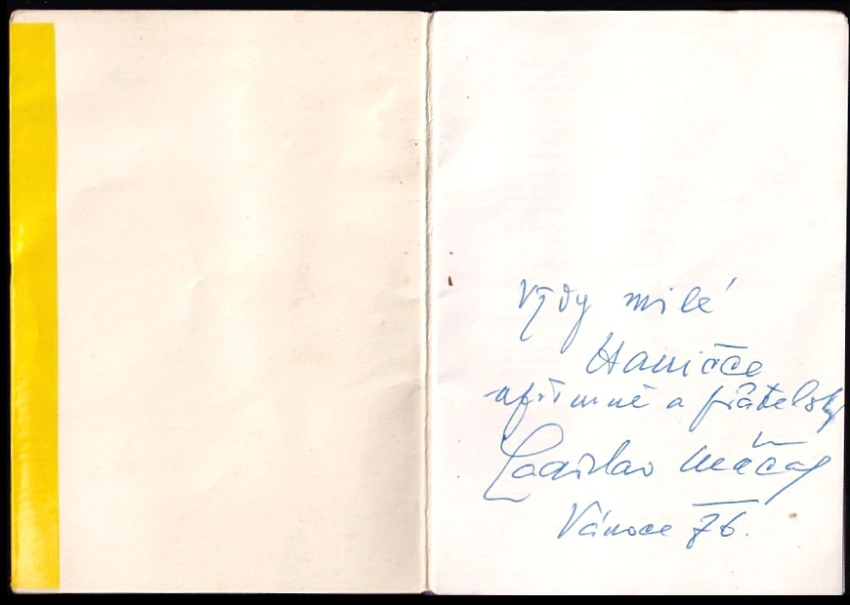 Vždy milé
Haničce
upřímně a přátelsky
Ladislav
Vánoce 76.